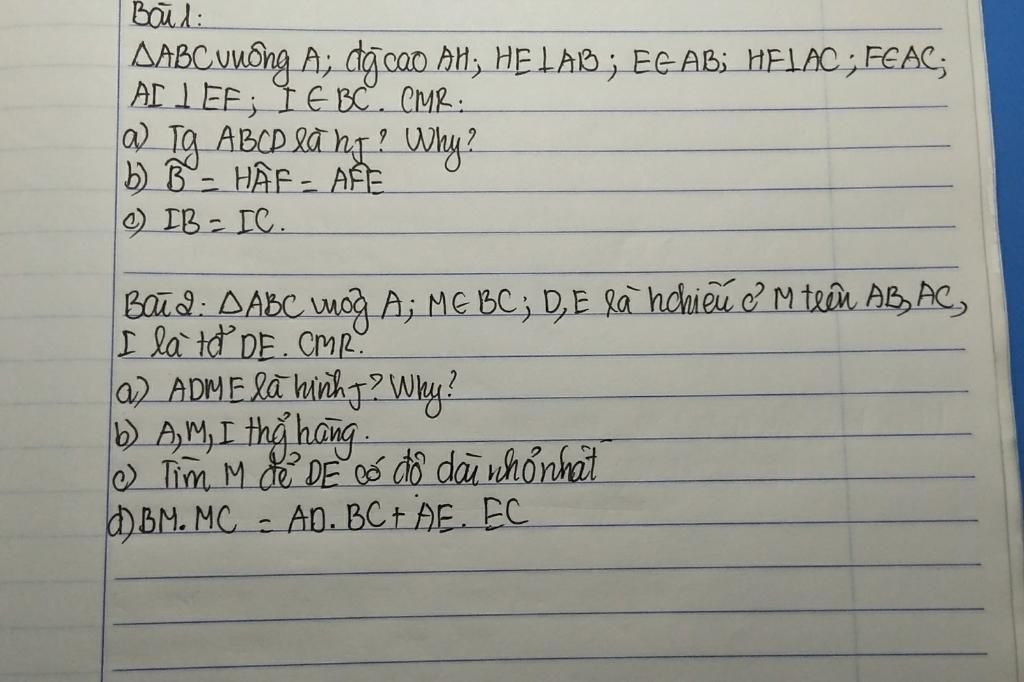 Bài 1:
ΔABC vuông A; đg cao AH; HE⊥AB; E∈AB; HF⊥AC; F∈AC;
AI⊥EF; I∈BC. CMR:
a) Tg ABCD là h J? Why?
b) B̂ = HÂF = AF̂E
c) IB = IC.
Bài 2: ΔABC vuog A; M∈BC; D,E là hchiếu c̉ M trên AB, AC,
I là tđ' DE. CMR.
a) ADME là hình J? Why?
b) A,M,I thg̉ hàng.
c) Tìm M để DE có độ dài nhỏ nhất
d) BM.MC = AD. BC + AE. EC